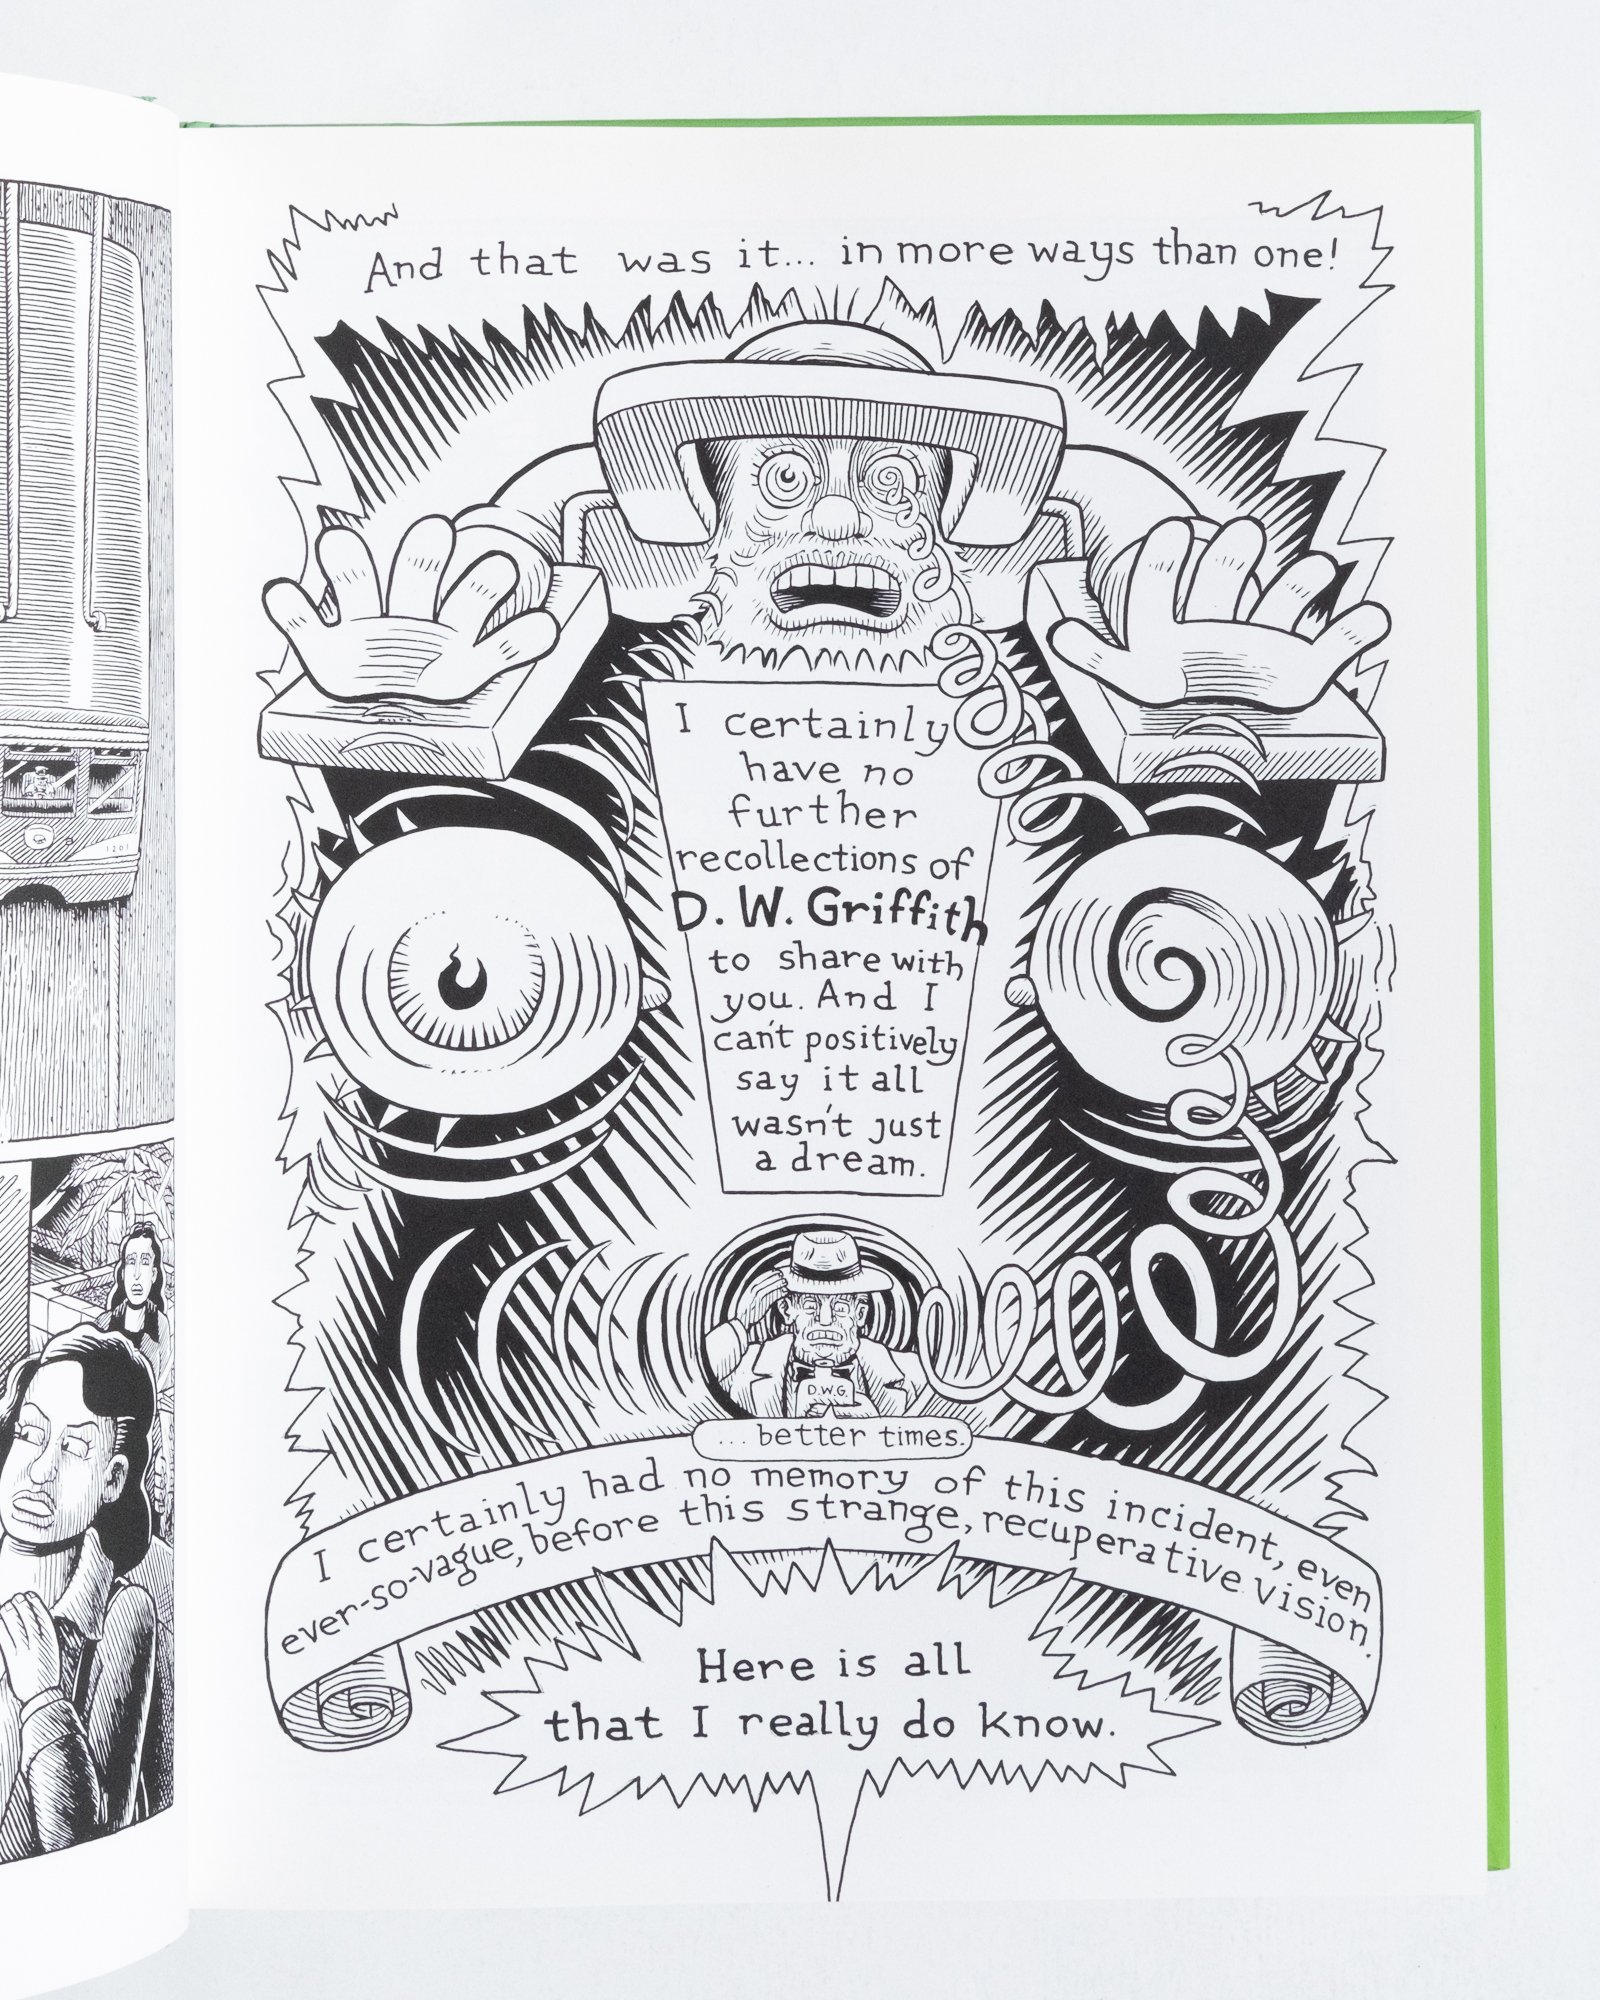 And that was it... in more ways than one!
I certainly
have no
further
recollections of
D. W. Griffith
to share with
you. And I
can't positively
say it all
wasn't just
a dream.
D.W.G.
...better times.
I certainly had no memory of this incident, even
ever-so-vague, before this strange, recuperative vision.
Here is all
that I really do know.
1201